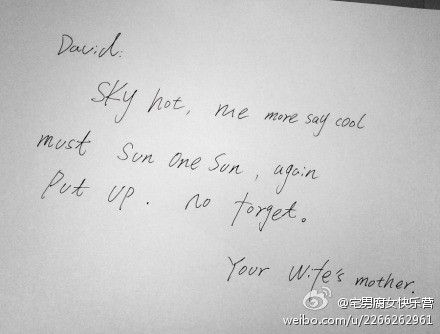 David:
SKY hot, me more say cool
must sun one sun, again
Put up. no forget。
Your Wife's mother.
@宅男腐女快乐营
weibo.com/u/2266262961